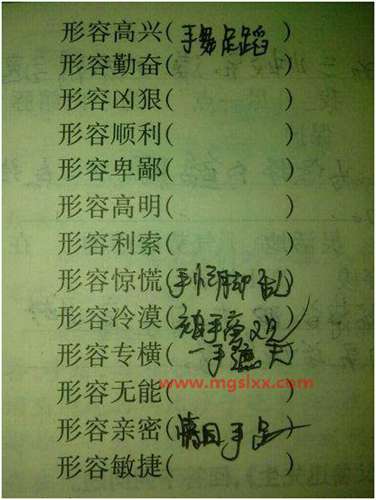 形容高兴(手舞足蹈)
形容勤奋( )
形容凶狠( )
形容顺利( )
形容卑鄙( )
形容高明( )
形容利索( )
形容惊慌(手忙脚乱)
形容冷漠(袖手旁观)
形容专横(一手遮天)
www.mgslxx.com
形容无能( )
形容亲密(情同手足)
形容敏捷( )